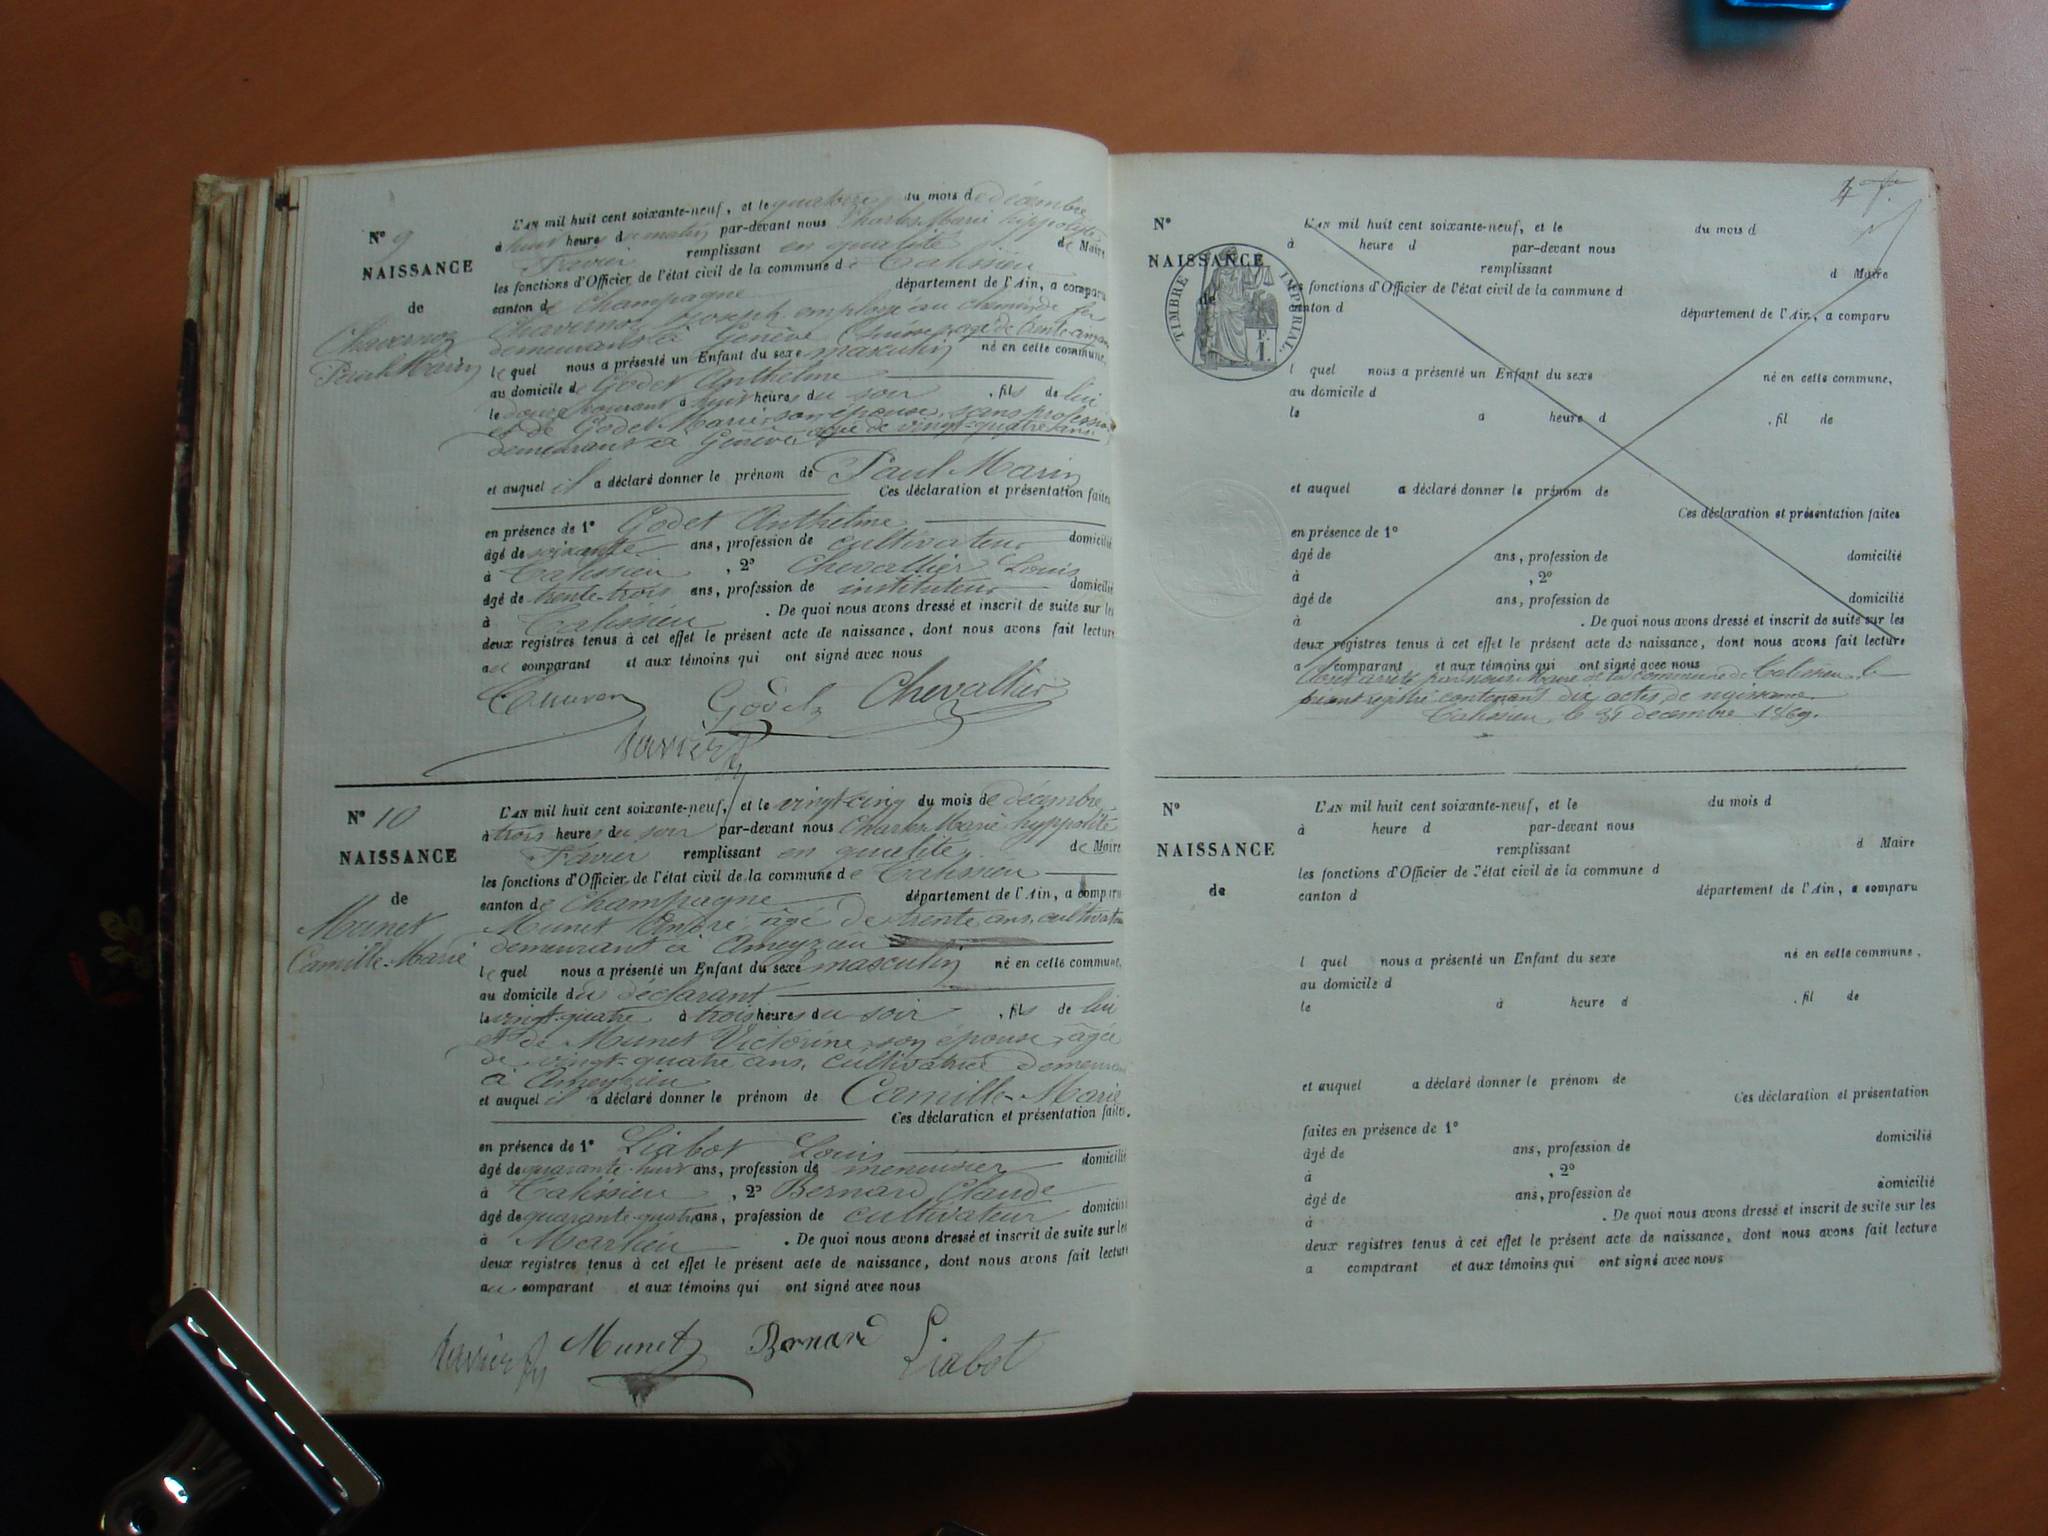 L'AN mil huit cent soixante-neuf, et le quatorze du mois de décembre
N° 9
à huit heures du matin par-devant nous Charles Marie hippolyte
Favier remplissant en qualité de Maire
NAISSANCE
les fonctions d'Officier de l'état civil de la commune de Talissieu
de
canton de Champagne département de l'Ain, a comparu
Chavernoz Joseph employé au chemin de fer
Chavernoz
demeurant à Genève (Suisse) agé de trente cinq ans
Paul Marin
lequel nous a présenté un Enfant du sexe masculin né en cette commune,
au domicile de Godet Anthelme
le douze courant à huit heures du soir , fils de lui
et de Godet Marie son épouse, sans profession
demeurant à Genève agée de vingt-quatre ans
et auquel il a déclaré donner le prénom de Paul Marin
Ces déclaration et présentation faites
en présence de 1° Godet Anthelme
âgé de soixante ans, profession de cultivateur domicilié
à Talissieu , 2° Chevallier Louis
âgé de trente-trois ans, profession de instituteur domicilié
à Talissieu . De quoi nous avons dressé et inscrit de suite sur les
deux registres tenus à cet effet le présent acte de naissance, dont nous avons fait lecture
au comparant et aux témoins qui ont signé avec nous
Godet Chevallier
Favier
L'AN mil huit cent soixante-neuf, et le vingt-cinq du mois de décembre
N° 10
à trois heures du soir par-devant nous Charles Marie hyppolite
Favier remplissant en qualité de Maire
NAISSANCE
les fonctions d'Officier de l'état civil de la commune de Talissieu
de
canton de Champagne département de l'Ain, a comparu
Munet
Munet André âgé de trente ans, cultivateur
demeurant à Ameyzieu
Camille-Marie
lequel nous a présenté un Enfant du sexe masculin né en cette commune,
au domicile du déclarant
le vingt-quatre à trois heures du soir , fils de lui
et de Munet Victorine son épouse, âgée
de vingt-quatre ans, cultivatrice demeurant
à Ameyzieu
et auquel il a déclaré donner le prénom de Camille-Marie
Ces déclaration et présentation faites.
en présence de 1° Liabot Louis
âgé de quarante-huit ans, profession de menuisier domicilié
à Talissieu , 2° Bernard Claude
âgé de quarante-quatre ans, profession de cultivateur domicilié
à Marlieu . De quoi nous avons dressé et inscrit de suite sur les
deux registres tenus à cet effet le présent acte de naissance, dont nous avons fait lecture
au comparant et aux témoins qui ont signé avec nous
Favier Munet Bernard Liabot
N° L'AN mil huit cent soixante-neuf, et le du mois d
à heure d par-devant nous
remplissant d Maire
NAISSANCE
de
TIMBRE IMPÉRIAL
les fonctions d'Officier de l'état civil de la commune d
canton d département de l'Ain, a comparu
l quel nous a présenté un Enfant du sexe né en cette commune,
au domicile d
le à heure d , fil de
et auquel a déclaré donner le prénom de
Ces déclaration et présentation faites
en présence de 1°
âgé de ans, profession de domicilié
à , 2°
âgé de ans, profession de domicilié
à . De quoi nous avons dressé et inscrit de suite sur les
deux registres tenus à cet effet le présent acte de naissance, dont nous avons fait lecture
a comparant et aux témoins qui ont signé avec nous
Clos et arrêté par nous Maire de la commune de Talissieu le
présent registre contenant dix actes de naissance.
Talissieu, le 31 décembre 1869.
N° L'AN mil huit cent soixante-neuf, et le du mois d
à heure d par-devant nous
NAISSANCE remplissant d Maire
les fonctions d'Officier de l'état civil de la commune d
de canton d département de l'Ain, a comparu
l quel nous a présenté un Enfant du sexe né en cette commune,
au domicile d
le à heure d , fil de
et auquel a déclaré donner le prénom de
Ces déclaration et présentation
faites en présence de 1°
âgé de ans, profession de domicilié
à , 2°
âgé de ans, profession de domicilié
à . De quoi nous avons dressé et inscrit de suite sur les
deux registres tenus à cet effet le présent acte de naissance, dont nous avons fait lecture
a comparant et aux témoins qui ont signé avec nous